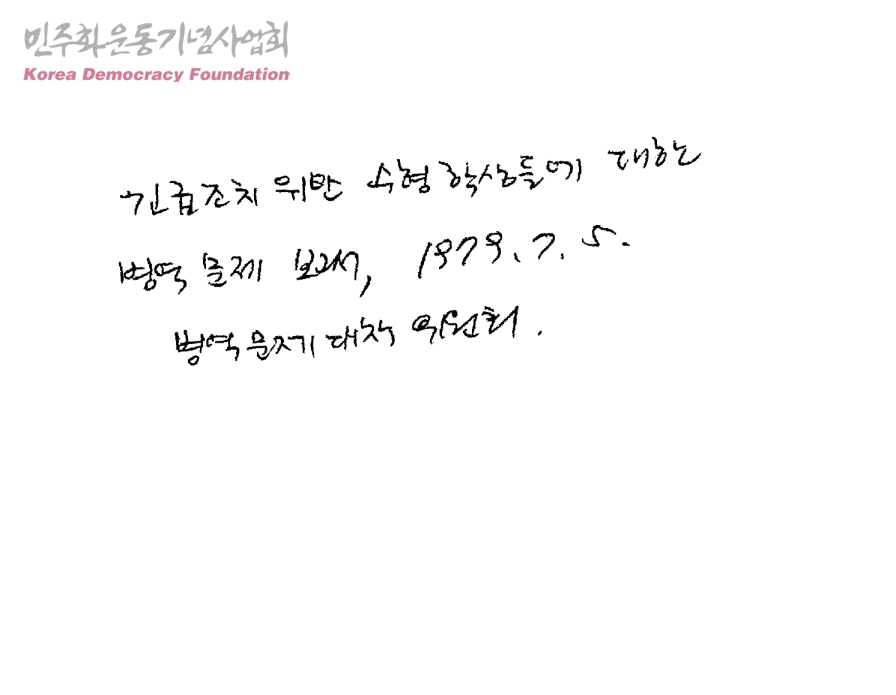 민주화운동기념사업회
Korea Democracy Foundation
긴급조치 위반 수형 학생들에 대한
병역 문제 보고서, 1979. 7. 5.
병역문제대책 위원회.